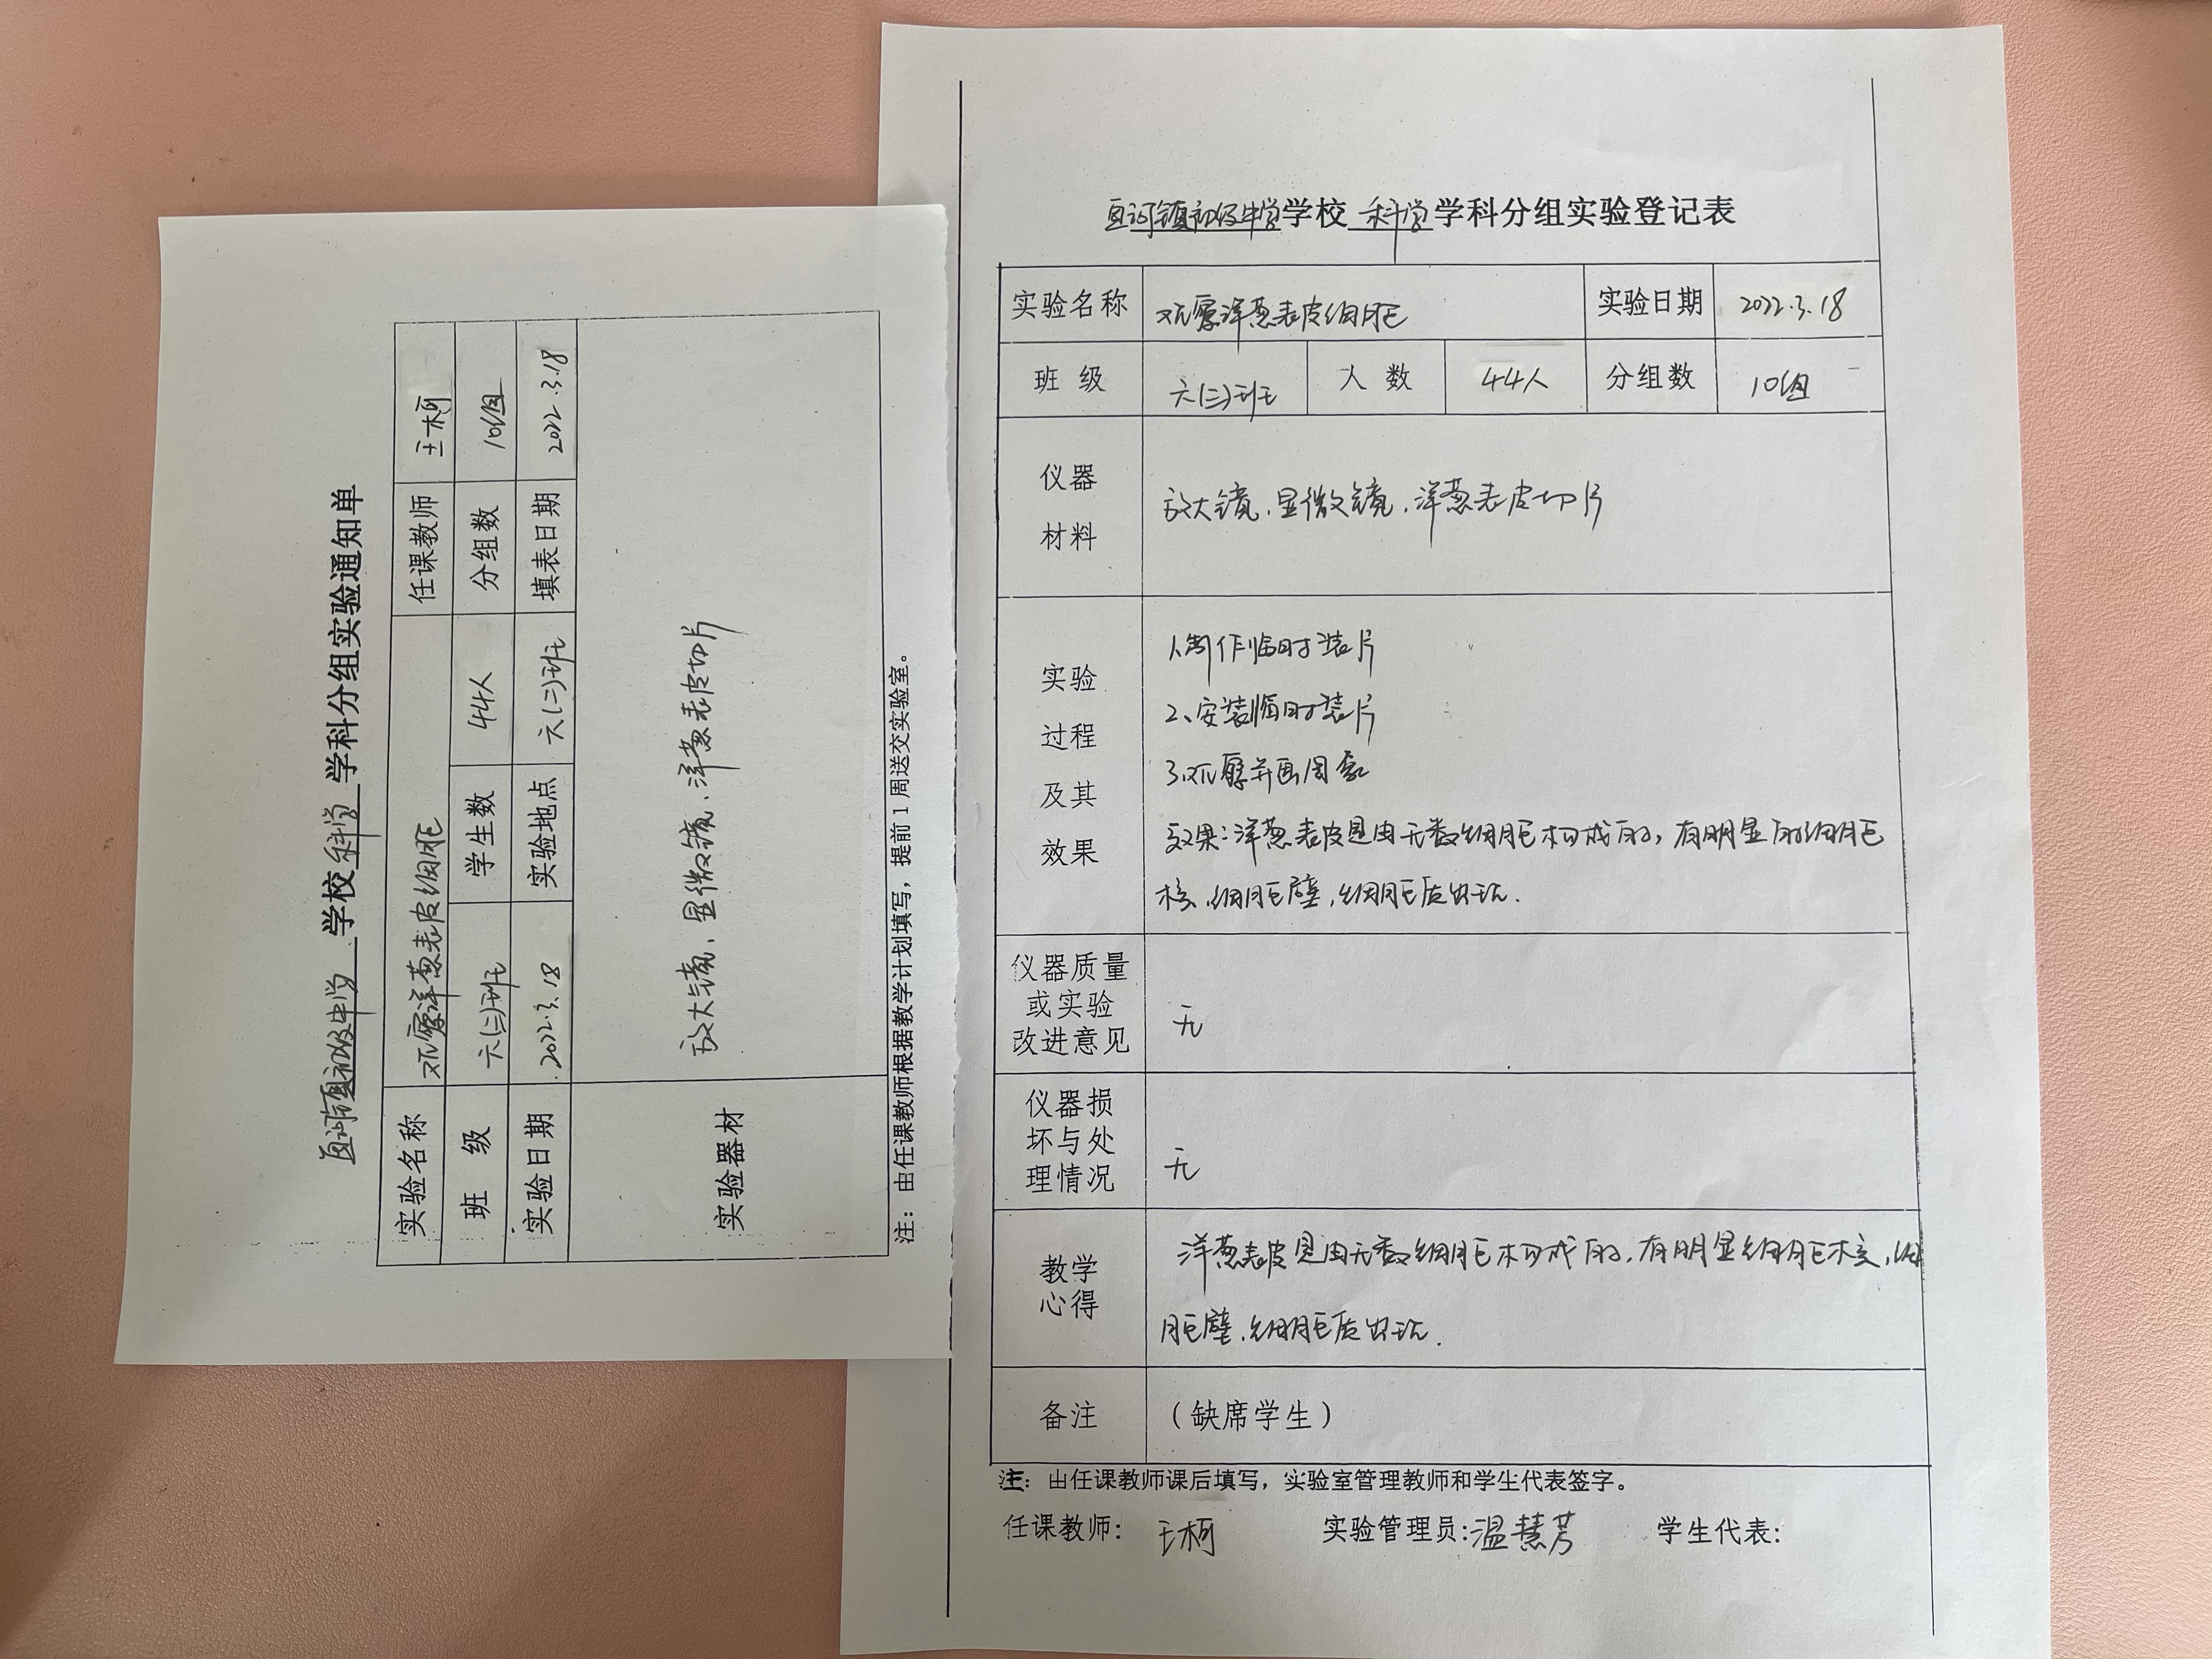 亘河镇初级中学 学校 科学 学科分组实验通知单
实验名称 观察洋葱表皮细胞 任课教师 王柯
班 级 六(二)班 学生数 44人 分组数 10组
实验日期 2022.3.18 实验地点 六(二)班 填表日期 2022.3.18
实验器材 放大镜、显微镜、洋葱表皮切片
注：由任课教师根据教学计划填写，提前1周送交实验室。
亘河镇初级中学学校 科学 学科分组实验登记表
实验名称 观察洋葱表皮细胞 实验日期 2022.3.18
班 级 六(二)班 人 数 44人 分组数 10组
仪器
材料
放大镜、显微镜、洋葱表皮切片
实验
过程
及其
效果
1、制作临时装片
2、安装临时装片
3、观察并画图
效果：洋葱表皮是由无数细胞构成的，有明显的细胞
核、细胞壁，细胞质
仪器质量
或实验
改进意见
无
仪器损
坏与处
理情况
无
教学
心得
洋葱表皮是由无数细胞构成的，有明显细胞核，细
胞壁，细胞质
备注 （缺席学生）
注：由任课教师课后填写，实验室管理教师和学生代表签字。
任课教师： 王柯 实验管理员：温慧芳 学生代表：